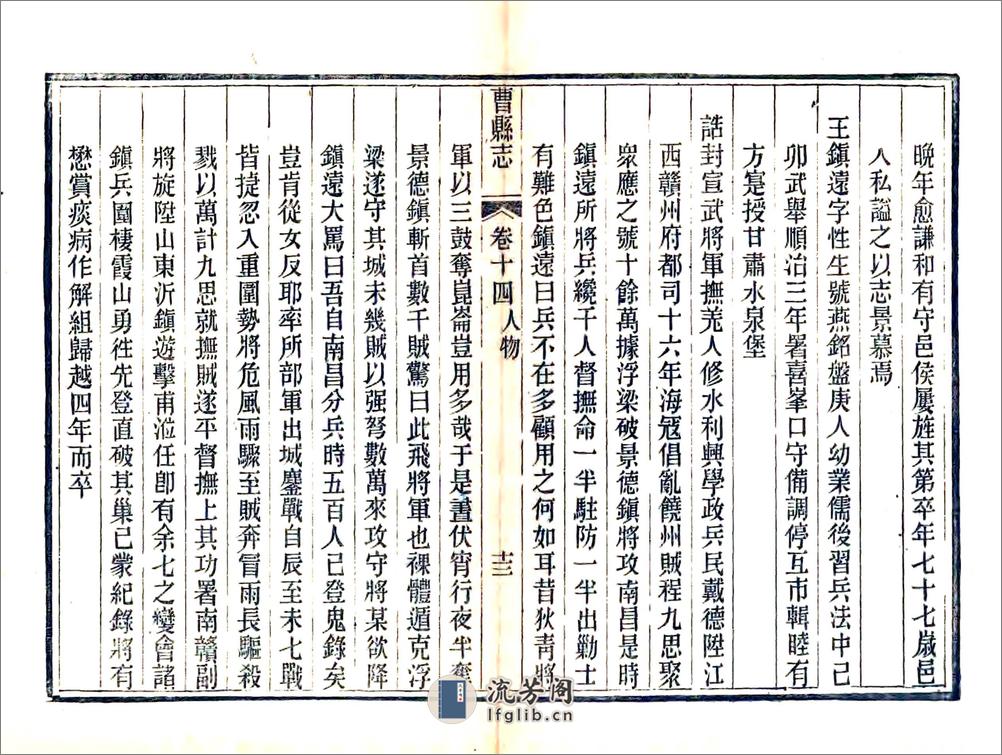 晚年愈謙和有守邑侯屢旌其第卒年七十七歲邑
人私謚之以志景慕焉
王鎮遠字性生號燕銘盤庚人幼業儒後習兵法中己
卯武舉順治三年署喜峯口守備調停互市輯睦有
方寔授甘肅水泉堡
誥封宣武將軍撫羌人修水利興學政兵民戴德陞江
西贛州府都司十六年海冦倡亂饒州賊程九思聚
衆應之號十餘萬據浮梁破景德鎮將攻南昌是時
鎮遠所將兵纔千人督撫命一半駐防一半出勦士
有難色鎮遠曰兵不在多顧用之何如耳昔狄靑將
曹縣志 卷十四 人物 十三
軍以三鼓奪崑崙豈用多哉于是晝伏宵行夜半奪
景德鎮斬首數千賊驚曰此飛將軍也裸體遁克浮
梁遂守其城未幾賊以强弩數萬來攻守將某欲降
鎮遠大罵曰吾自南昌分兵時五百人已登鬼錄矣
豈肯從女反耶率所部軍出城鏖戰自辰至未七戰
皆捷忽入重圍勢將危風雨驟至賊奔冒雨長驅殺
戮以萬計九思就撫賊遂平督撫上其功署南贛副
將旋陞山東沂鎮遊擊甫涖任卽有余七之變會諸
鎮兵圍棲霞山勇徃先登直破其巢已蒙紀錄將有
懋賞痰病作解組歸越四年而卒
流芳阁
lfglib.cn